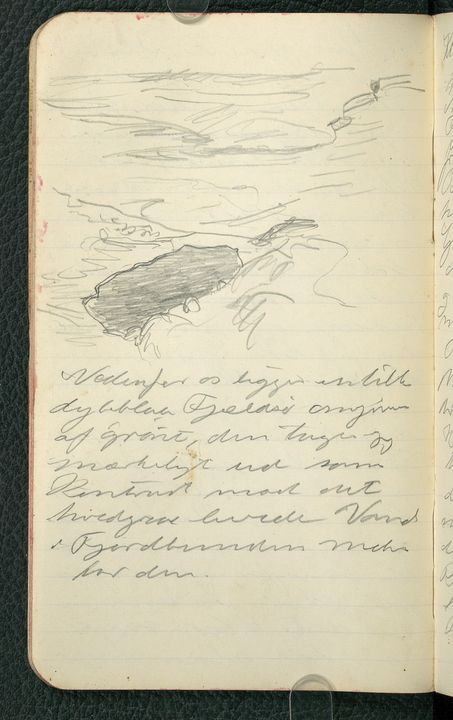 Nedenfor os ligger en lille
dybblaa Fjeldsø omgiven
af grønt, den tager sig
mærkeligt ud som
Kontrast mod det
hvidgraa lerede Vand
i Fjordbunden